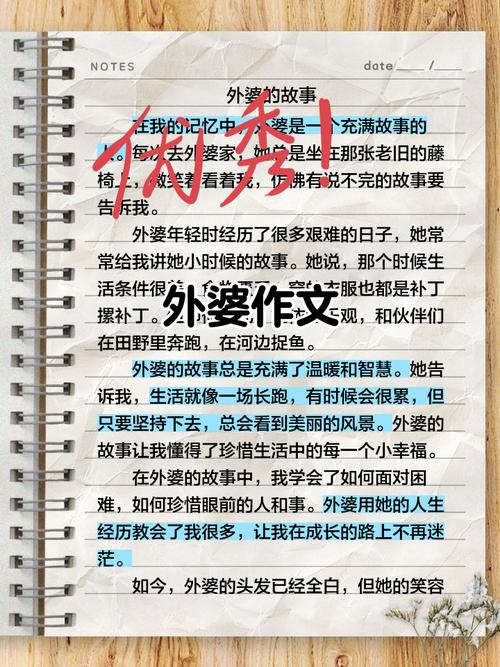 NOTES
date / 
外婆的故事
优秀!
在我的记忆中，外婆是一个充满故事的
人。每次去外婆家，她总是坐在那张老旧的藤
椅上，微笑着看着我，仿佛有说不完的故事要
告诉我。
外婆年轻时经历了很多艰难的日子，她常
常给我讲她小时候的故事。她说，那个时候生
活条件很 衣服也都是补丁
外婆作文
摞补丁。 观，和伙伴们
在田野里奔跑，在河边捉鱼。
外婆的故事总是充满了温暖和智慧。她告
诉我，生活就像一场长跑，有时候会很累，但
只要坚持下去，总会看到美丽的风景。外婆的
故事让我懂得了珍惜生活中的每一个小幸福。
在外婆的故事中，我学会了如何面对困
难，如何珍惜眼前的人和事。外婆用她的人生
经历教会了我很多，让我在成长的路上不再迷
茫。
如今，外婆的头发已经全白，但她的笑容